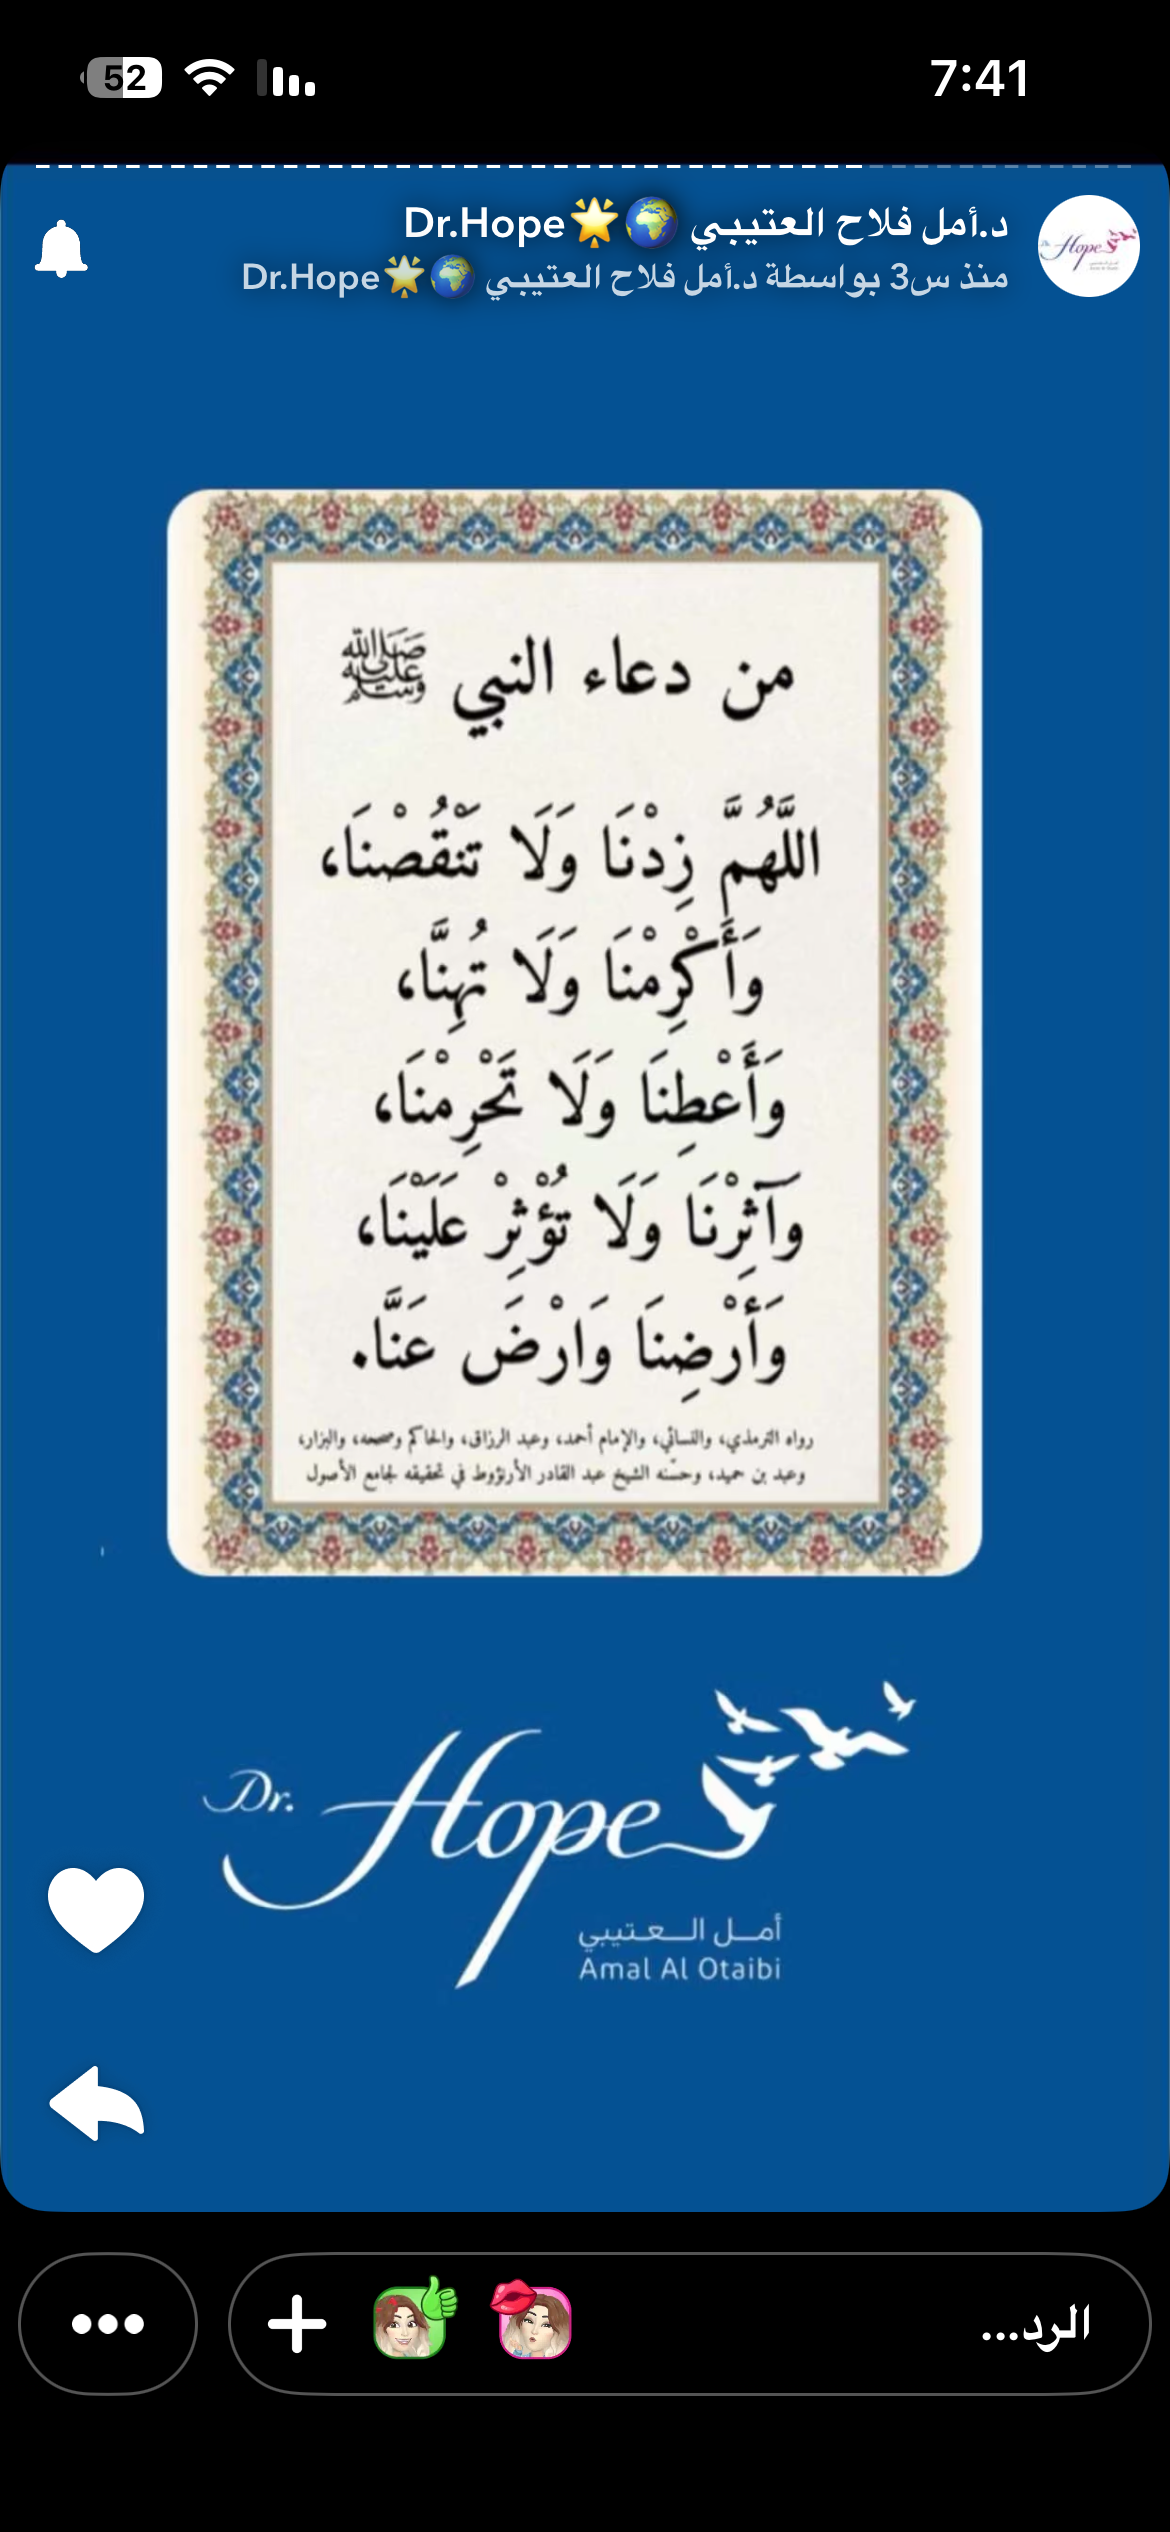 52
7:41
د.أمل فلاح العتيبي 🌍🌟Dr.Hope
منذ س3 بواسطة د.أمل فلاح العتيبي 🌍🌟Dr.Hope
من دعاء النبي ﷺ
اللَّهُمَّ زِدْنَا وَلَا تَنْقُصْنَا،
وَأَكْرِمْنَا وَلَا تُهِنَّا،
وَأَعْطِنَا وَلَا تَحْرِمْنَا،
وَآثِرْنَا وَلَا تُؤْثِرْ عَلَيْنَا،
وَأَرْضِنَا وَارْضَ عَنَّا.
رواه الترمذي، والنسائي، والإمام أحمد، وعبد الرزاق، والحاكم وصححه، والبزار،
وعبد بن حميد، وحسّنه الشيخ عبد القادر الأرنؤوط في تحقيقه لجامع الأصول
Dr. Hope
أمـل الـعـتيبي
Amal Al Otaibi
الرد...